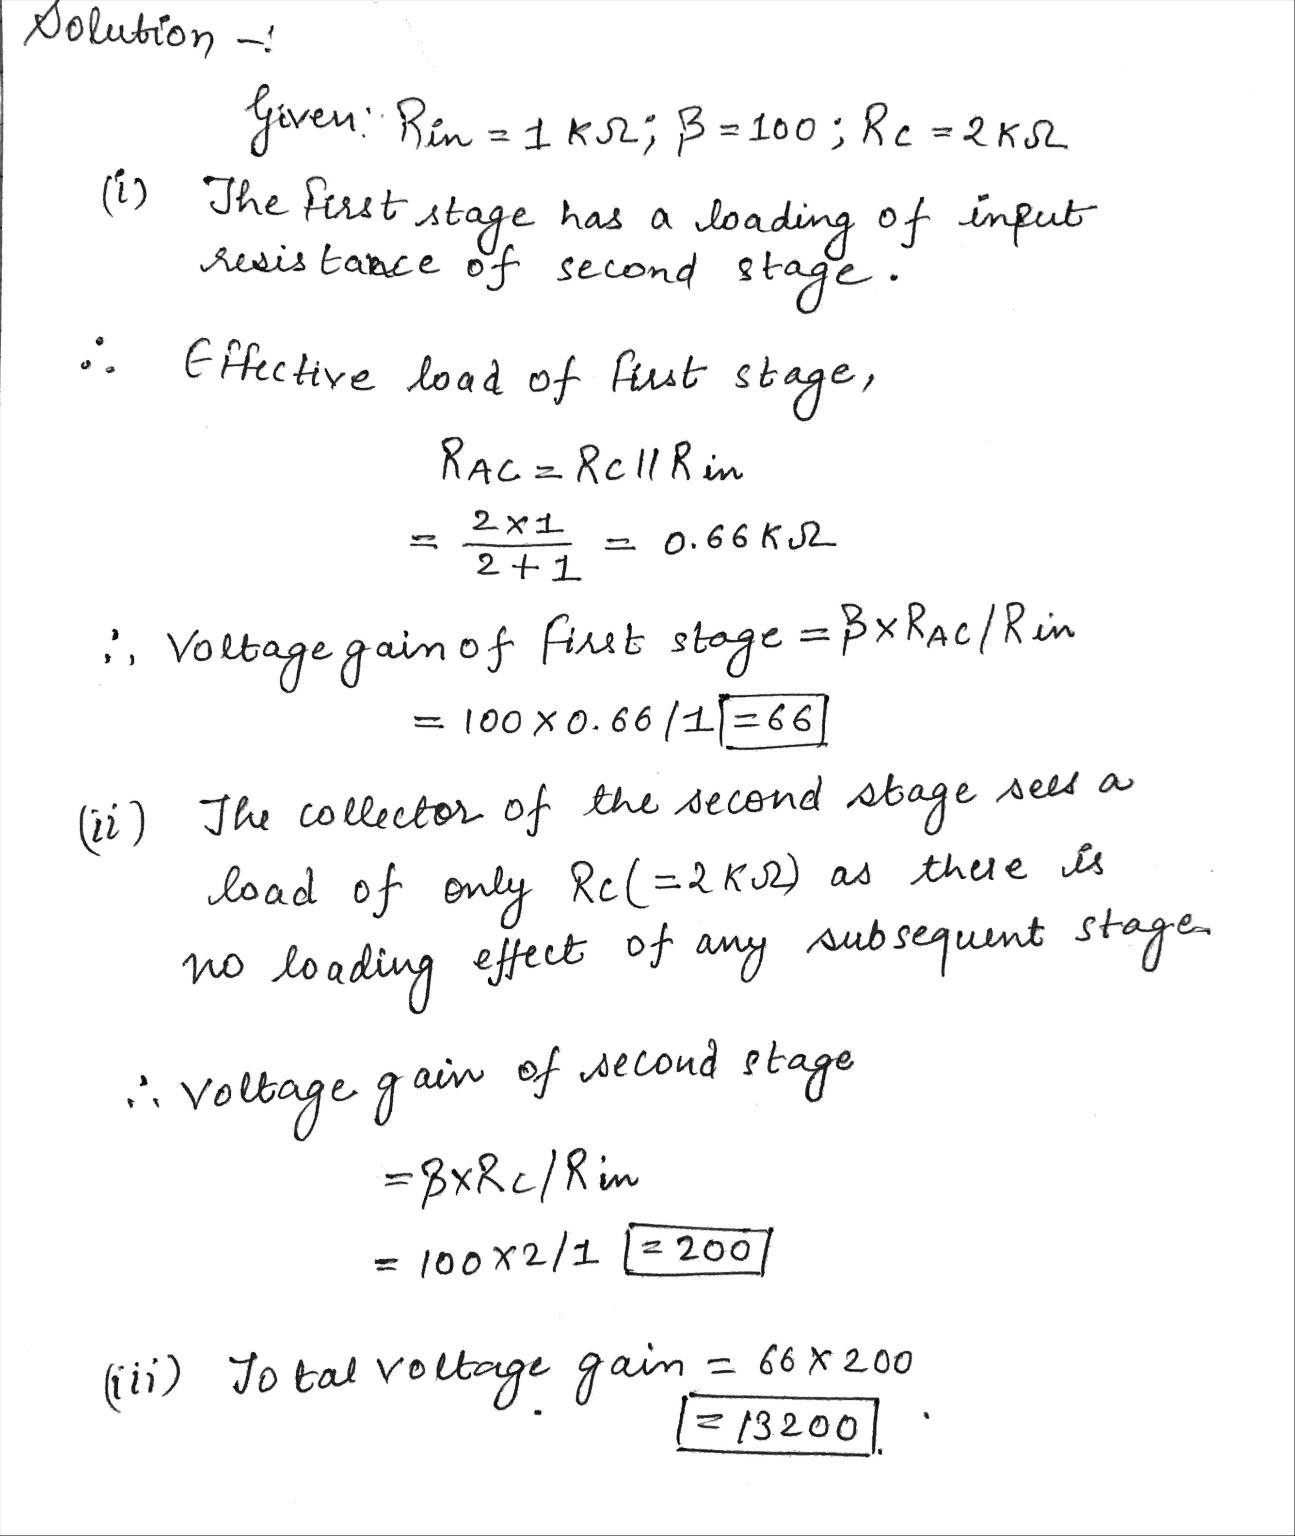 Solution -:
Given: Rin = 1 KΩ; β = 100 ; Rc = 2KΩ
(i) The first stage has a loading of input
resistance of second stage.
∴ Effective load of first stage,
RAC = Rc || Rin
= 2×1 / 2+1 = 0.66 KΩ
∴ Voltage gain of first stage = β×RAC/Rin
= 100 × 0.66 /1 = 66
(ii) The collector of the second stage sees a
load of only Rc (=2KΩ) as there is
no loading effect of any subsequent stage
∴ voltage gain of second stage
= β×Rc/Rin
= 100×2/1 = 200
(iii) Total voltage gain = 66 × 200
= 13200.